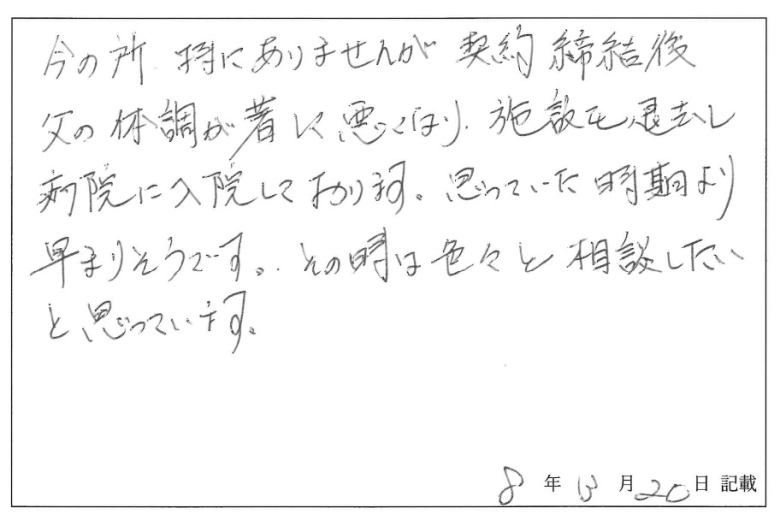 今の所 特にありませんが 契約締結後
父の体調が著しく悪くなり、施設も退去し
病院に入院しております。思っていた時期より
早まりそうです。その時は色々と相談したい
と思っています。
8年 月20日 記載